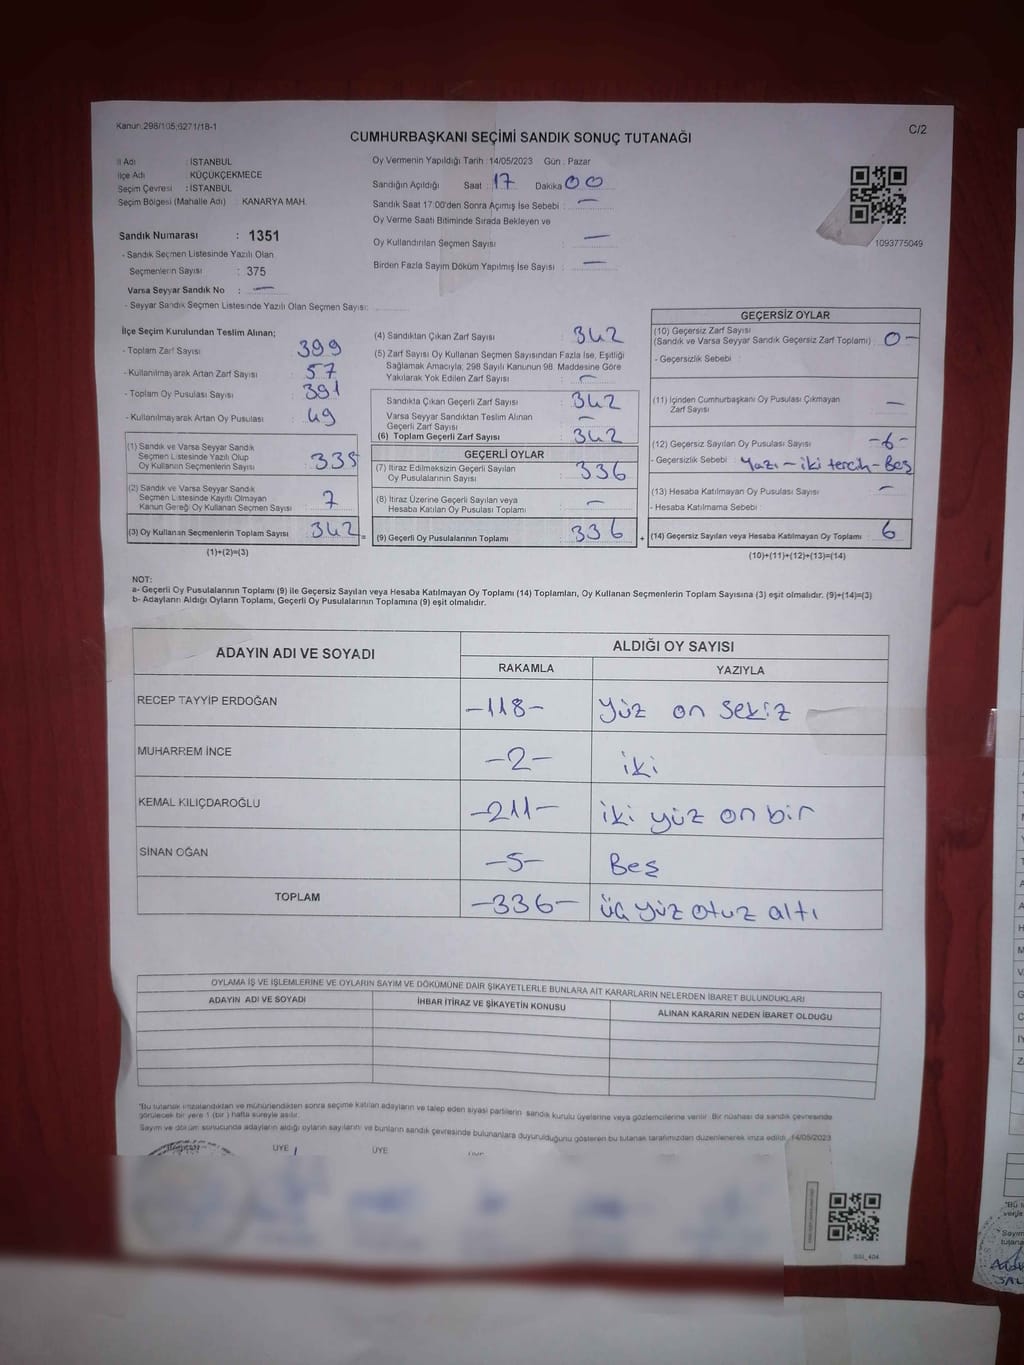 Kanun:298/105;6271/18-1
C/2
CUMHURBAŞKANI SEÇİMİ SANDIK SONUÇ TUTANAĞI
İl Adı : İSTANBUL
İlçe Adı : KÜÇÜKÇEKMECE
Seçim Çevresi : İSTANBUL
Seçim Bölgesi (Mahalle Adı) : KANARYA MAH.
Sandık Numarası : 1351
- Sandık Seçmen Listesinde Yazılı Olan
Seçmenlerin Sayısı : 375
Varsa Seyyar Sandık No : —
- Seyyar Sandık Seçmen Listesinde Yazılı Olan Seçmen Sayısı:
Oy Vermenin Yapıldığı Tarih :14/05/2023 Gün : Pazar
Sandığın Açıldığı Saat : 17 Dakika 00
Sandık Saat 17:00'den Sonra Açımış İse Sebebi : —
Oy Verme Saati Bitiminde Sırada Bekleyen ve
Oy Kullandırılan Seçmen Sayısı : —
Birden Fazla Sayım Döküm Yapılmış İse Sayısı : —
1093775049
İlçe Seçim Kurulundan Teslim Alınan;
- Toplam Zarf Sayısı : 399
- Kullanılmayarak Artan Zarf Sayısı : 57
- Toplam Oy Pusulası Sayısı : 391
- Kullanılmayarak Artan Oy Pusulası : 49
(1) Sandık ve Varsa Seyyar Sandık
Seçmen Listesinde Yazılı Olup
Oy Kullanan Seçmenlerin Sayısı : 335
(2) Sandık ve Varsa Seyyar Sandık
Seçmen Listesinde Kayıtlı Olmayan
Kanun Gereği Oy Kullanan Seçmen Sayısı : 7
(3) Oy Kullanan Seçmenlerin Toplam Sayısı : 342 =
(1)+(2)=(3)
(4) Sandıktan Çıkan Zarf Sayısı : 342
(5) Zarf Sayısı Oy Kullanan Seçmen Sayısından Fazla İse, Eşitliği
Sağlamak Amacıyla; 298 Sayılı Kanunun 98. Maddesine Göre
Yakılarak Yok Edilen Zarf Sayısı : —
Sandıkta Çıkan Geçerli Zarf Sayısı : 342
Varsa Seyyar Sandıktan Teslim Alınan
Geçerli Zarf Sayısı : —
(6) Toplam Geçerli Zarf Sayısı : 342
GEÇERLİ OYLAR
(7) İtiraz Edilmeksizin Geçerli Sayılan
Oy Pusulalarının Sayısı : 336
(8) İtiraz Üzerine Geçerli Sayılan veya
Hesaba Katılan Oy Pusulası Toplamı : —
(9) Geçerli Oy Pusulalarının Toplamı : 336 +
GEÇERSİZ OYLAR
(10) Geçersiz Zarf Sayısı
(Sandık ve Varsa Seyyar Sandık Geçersiz Zarf Toplamı) : 0 -
- Geçersizlik Sebebi :
(11) İçinden Cumhurbaşkanı Oy Pusulası Çıkmayan
Zarf Sayısı : —
(12) Geçersiz Sayılan Oy Pusulası Sayısı : -6-
- Geçersizlik Sebebi : Yazı - iki tercih - Beş
(13) Hesaba Katılmayan Oy Pusulası Sayısı : —
- Hesaba Katılmama Sebebi :
(14) Geçersiz Sayılan veya Hesaba Katılmayan Oy Toplamı : 6
(10)+(11)+(12)+(13)=(14)
NOT:
a- Geçerli Oy Pusulalarının Toplamı (9) ile Geçersiz Sayılan veya Hesaba Katılmayan Oy Toplamı (14) Toplamları, Oy Kullanan Seçmenlerin Toplam Sayısına (3) eşit olmalıdır. (9)+(14)=(3)
b- Adayların Aldığı Oyların Toplamı, Geçerli Oy Pusulalarının Toplamına (9) eşit olmalıdır.
ADAYIN ADI VE SOYADI
ALDIĞI OY SAYISI
RAKAMLA YAZIYLA
RECEP TAYYİP ERDOĞAN -118- Yüz on sekiz
MUHARREM İNCE -2- iki
KEMAL KILIÇDAROĞLU -211- iki yüz on bir
SİNAN OĞAN -5- Beş
TOPLAM -336- üç yüz otuz altı
OYLAMA İŞ VE İŞLEMLERİNE VE OYLARIN SAYIM VE DÖKÜMÜNE DAİR ŞİKAYETLERLE BUNLARA AİT KARARLARIN NELERDEN İBARET BULUNDUKLARI
ADAYIN ADI VE SOYADI İHBAR İTİRAZ VE ŞİKAYETİN KONUSU ALINAN KARARIN NEDEN İBARET OLDUĞU
*Bu tutanak imzalandıktan ve mühürlendikten sonra seçime katılan adayların ve talep eden siyasi partilerin sandık kurulu üyelerine veya gözlemcilerine verilir. Bir nüshası da sandık çevresinde
görülecek bir yere 1 (bir) hafta süreyle asılır.
Sayım ve döküm sonucunda adayların aldığı oyların sayılarını ve bunların sandık çevresinde bulunanlara duyurulduğunu gösteren bu tutanak tarafımızdan düzenlenerek imza edildi. 14/05/2023
ÜYE ÜYE
SSI_404